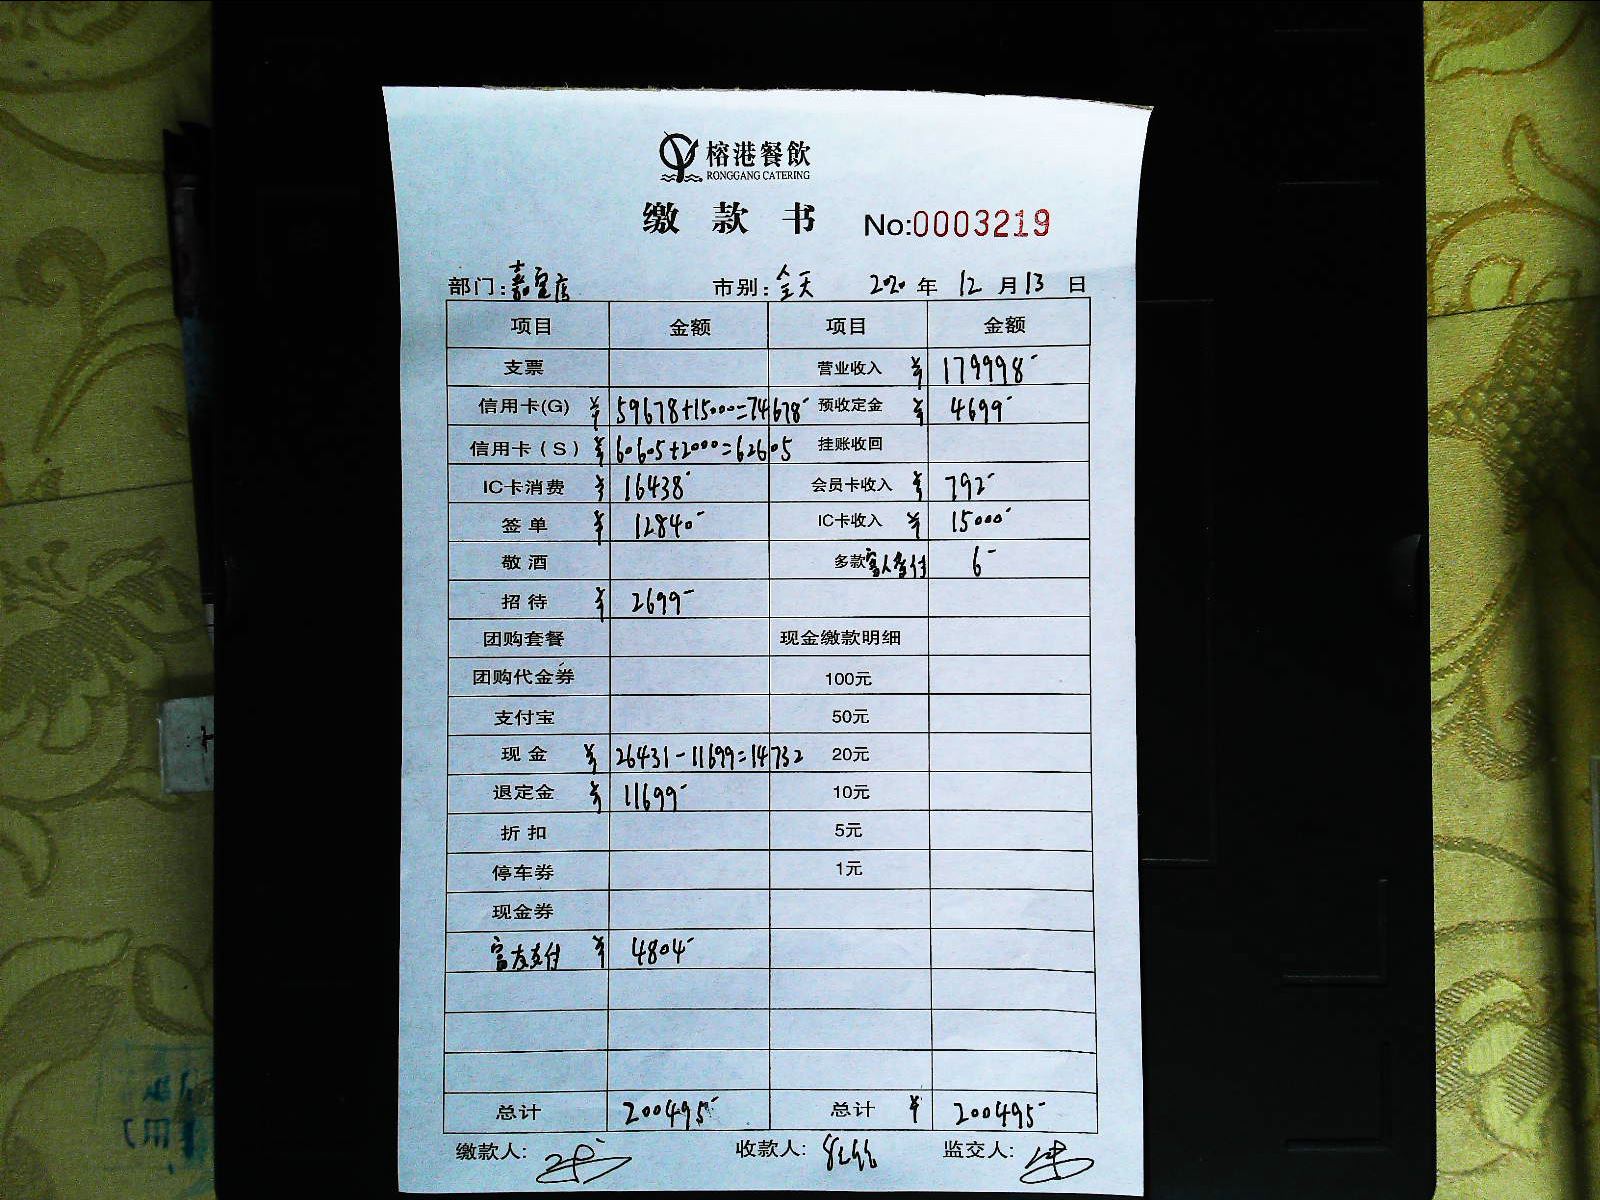 榕港餐飲
RONGGANG CATERING
缴款书 No:0003219
部门:嘉宴店 市别:全天 2020年12月13日
项目 金额 项目 金额
支票 营业收入 ¥ 179998-
信用卡(G) ¥ 59678+15000=74678- 预收定金 ¥ 4699-
信用卡(S) ¥ 60605+2000=62605 挂账收回
IC卡消费 ¥ 16438- 会员卡收入 ¥ 792-
签单 ¥ 12840- IC卡收入 ¥ 15000-
敬酒 多款 6-
招待 ¥ 2699-
团购套餐 现金缴款明细
团购代金券 100元
支付宝 50元
现金 ¥ 26431-11699=14732 20元
退定金 ¥ 11699- 10元
折扣 5元
停车券 1元
现金券
富友支付 ¥ 4804-
总计 200495- 总计 ¥ 200495-
缴款人: 收款人: 监交人: